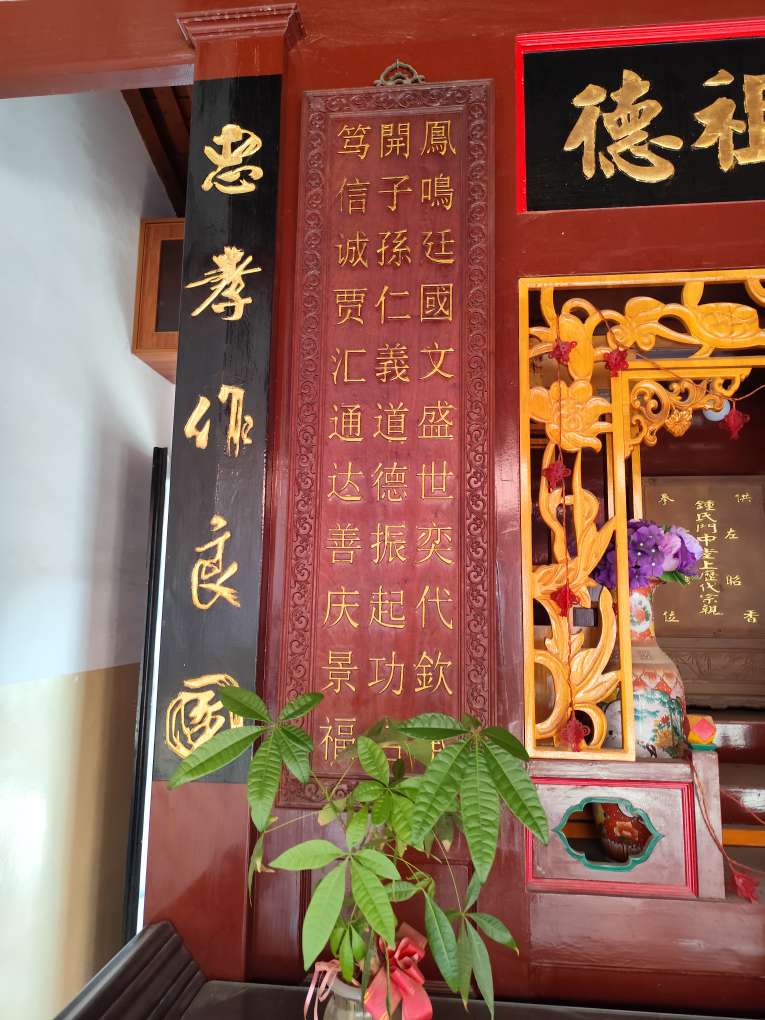 祖德
鳳鳴廷國文盛世奕代欽
開子孫仁義道德振起功
笃信诚贾汇通达善庆景福
忠孝作良图
供左昭香
鍾氏門中堂上歷代宗親
參位